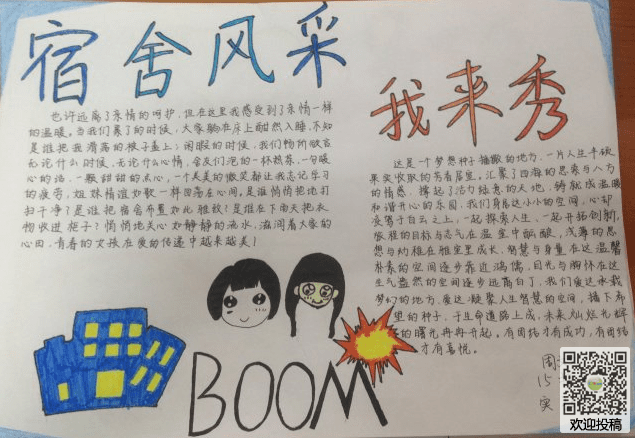 宿舍风采
我来秀
也许远离了亲情的呵护,但在这里我感受到了亲情一样
的温暖。当我们累了的时候,大家躺在床上酣然入睡,不知
是谁把我滑落的被子盖上;闲暇的时候,我们畅所欲言
无论什么时候,无论什么心情,舍友们泡的一杯热茶,一句暖
心的话,一颗甜甜的点心,一个美美的微笑都让我忘记学习
的疲劳,姐妹情谊如歌一样回荡在心间,是谁悄悄把地打
扫干净了?是谁把宿舍布置如此雅致?是谁在下雨天把衣
物收进柜子?悄悄地关心如静静的流水,滋润着大家的
心田,青春的女孩在爱的传递中越来越美!
这是个梦想种子播撒的地方,一片人生丰硕
果实收取的秀雅居室,汇聚了四海的思索与八方
的情感,撑起了活力绿意的天地,铸就成温暖
和谐开心的乐园。我们身居这小小的空间,心却
交驾于白云之上,一起探索人生,一起开拓创新,
旅程的目标与志气在温室中酝酿,浅薄的思
想与幼稚在雅室里成长,智慧与身量在这温馨
朴素的空间逐步靠近鸿儒,目光与胸怀在这
生气盎然的空间逐步远离白丁,我们爱这承载
梦幻的地方,爱这凝聚人生智慧的空间,播下希
望的种子,于生命道路上成,未来灿烂光辉
的曙光冉冉升起。有团结才有成功,有团结
才有喜悦。
BOOM
周
15
实
欢迎投稿